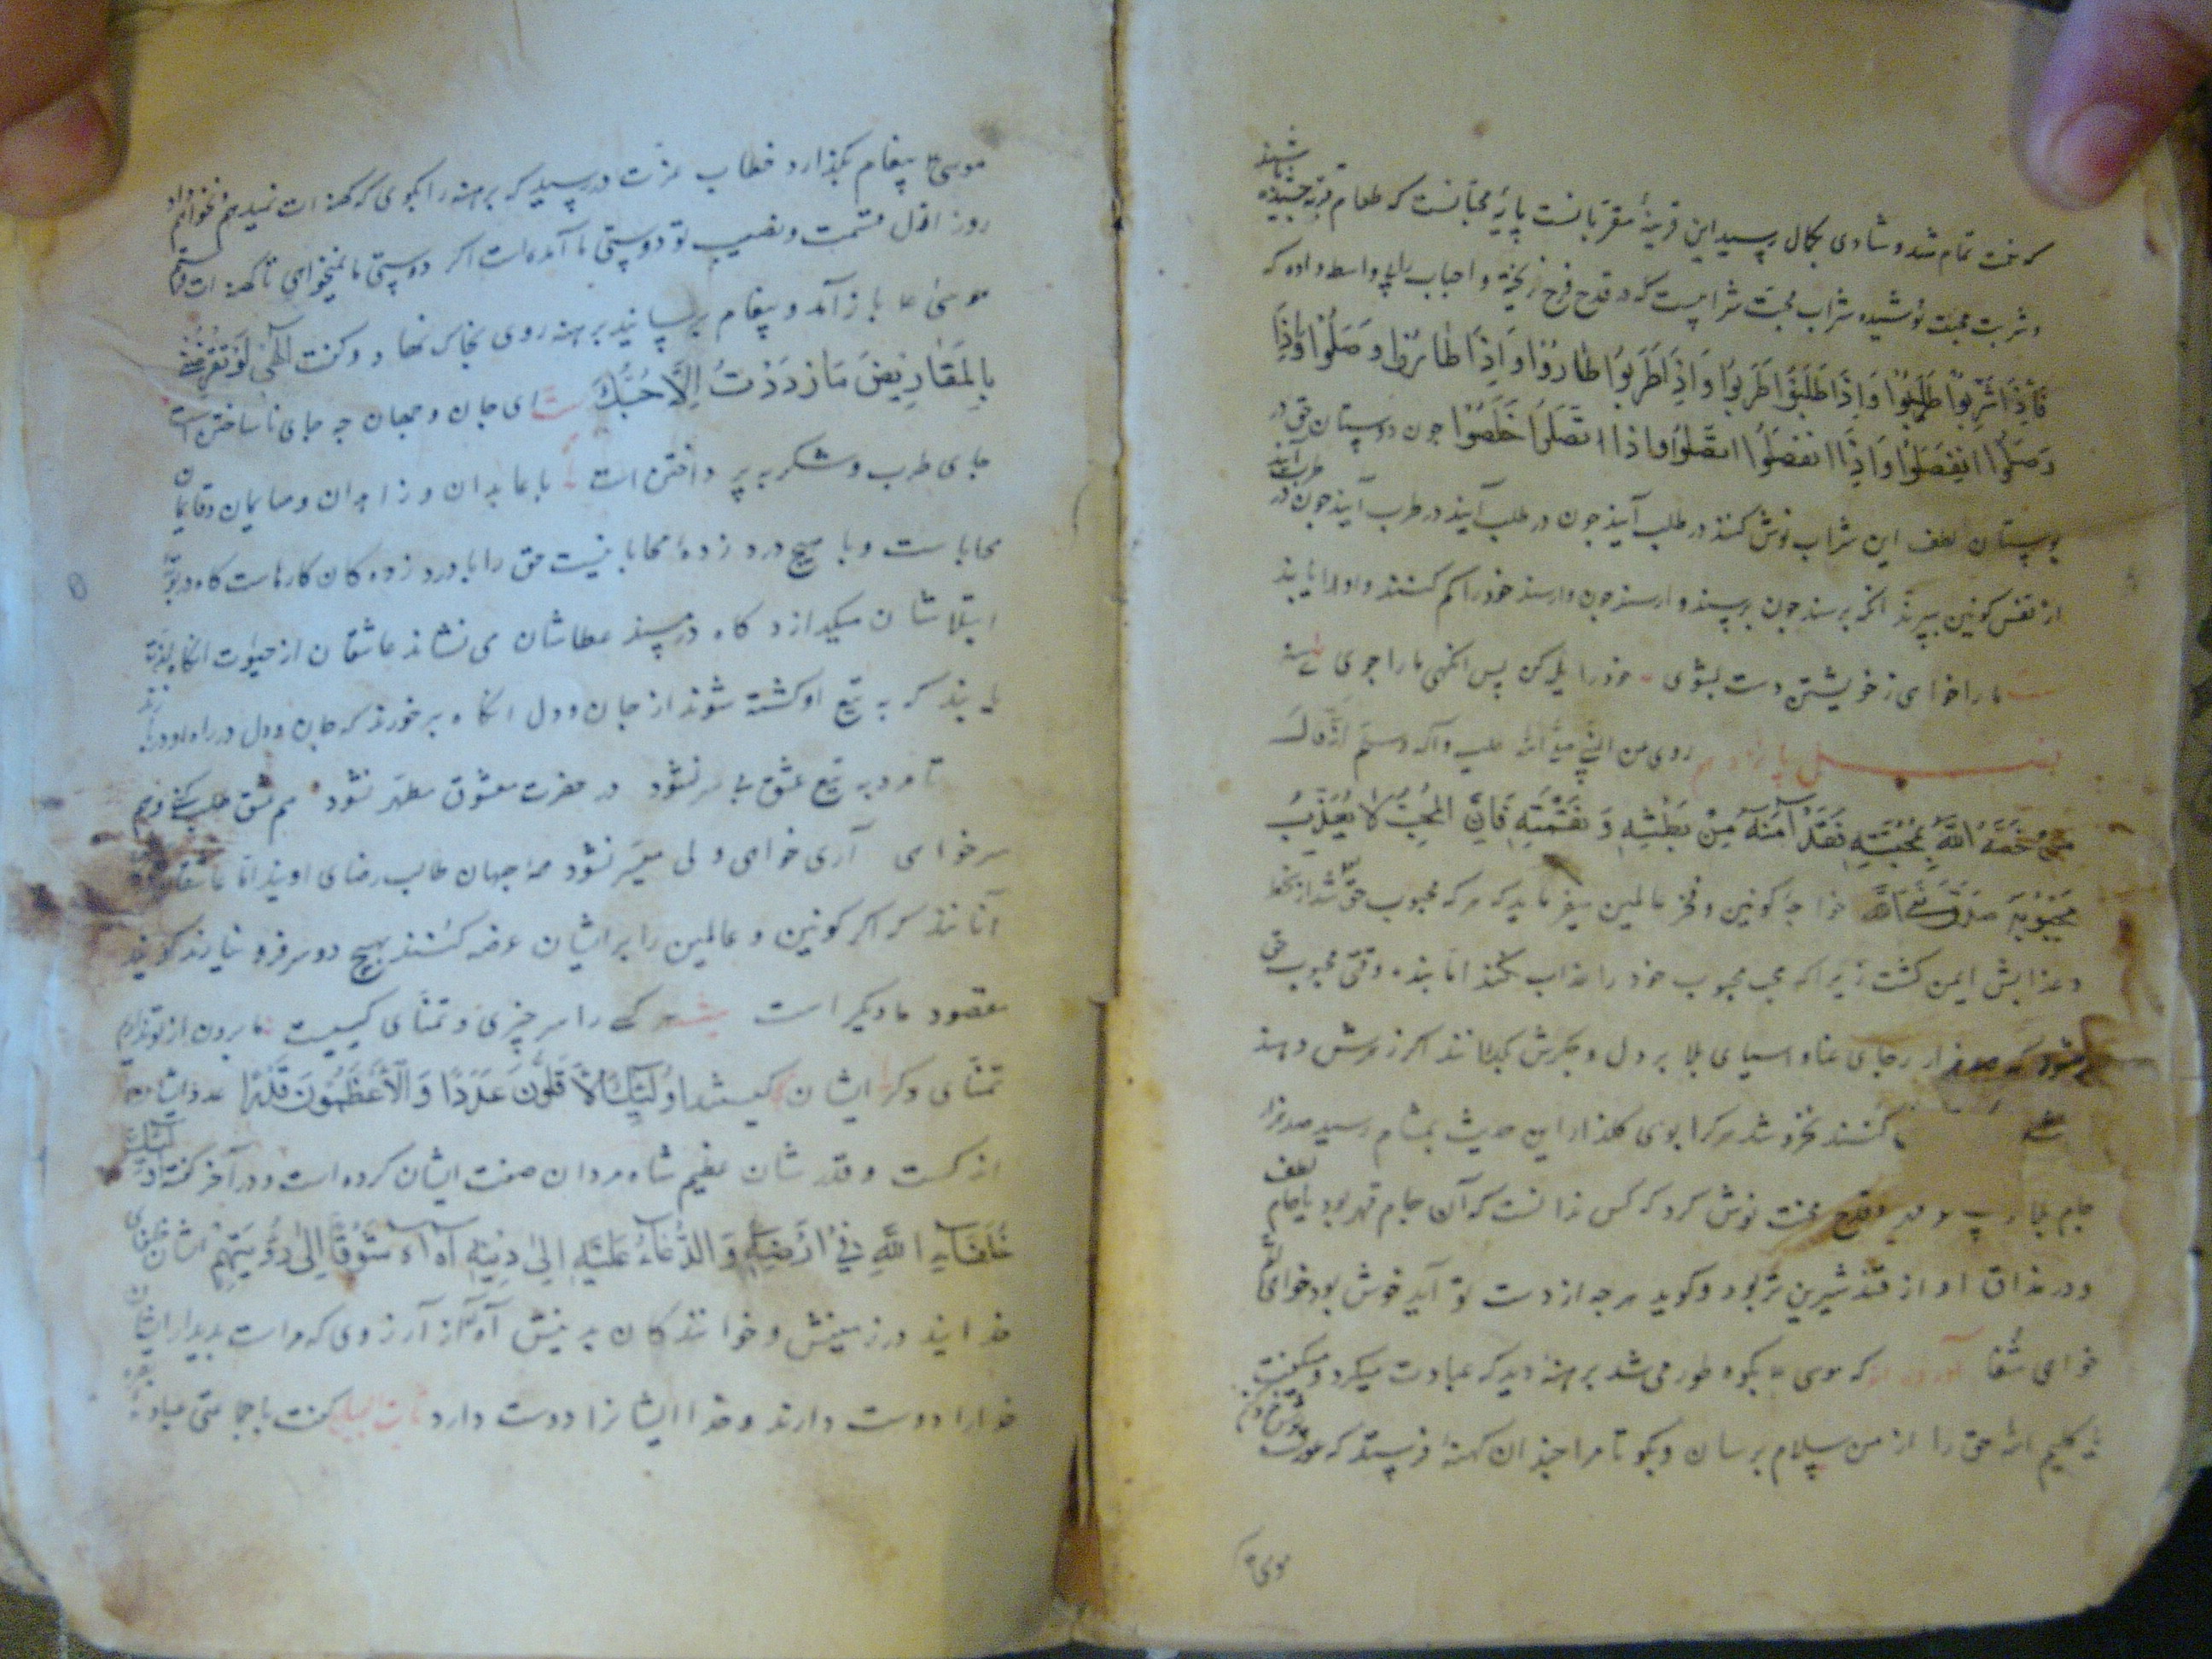 که نعمت تمام شد و شادی بکمال رسید این قرینهٔ مقربانست پایهٔ محبانست که طعام قربت چشیده باشند
و شربت محبت نوشیده شراب محبت شرابیست که در قدح فرح ریخته و احباب را بی واسطه داده که
فَاِذَا شَرِبُوا طَلَبُوا وَاِذَا طَلَبُوا طَرِبُوا وَاِذَا طَرِبُوا طَارُوا وَاِذَا طَارُوا وَصَلُوا وَاِذَا
وَصَلُوا اتَّصَلُوا وَاِذَا اتَّصَلُوا خَلَصُوا چون دوستان حق در
بوستان لطف این شراب نوش کنند در طلب آیند چون در طلب آیند در طرب آیند چون در طرب آیند
از قفس کونین بپرند انکه برسند چون برسند وارسند چون وارسند خود را کم کنند و او را یابند
مارا خواهی ز خویشتن دست بشوی خود را یله کن پس انکهی مارا جوی
روی عن النبی صلی الله علیه وآله وسلم انه قال
خَصَّهُ اللّٰهُ بِمَحَبَّتِهِ فَقَدْ آمَنَهُ مِنْ بَطْشِهِ وَ نِقْمَتِهِ فَاِنَّ الْمُحِبَّ لَا یُعَذِّبُ
مَحْبُوبَهُ صدق رسول الله خواجهٔ کونین و فخر عالمین میفرماید که هر که محبوب حق شد از
و عذابش ایمن کشت زیرا که محب محبوب خود را عذاب نکند اما بنده وقتی محبوب حق
شود که صد هزار رجای عنا و اسیای بلا بر دل و جکرش بکردانند اکر زهرش دهند
کنند نخروشد هر کرا بوی کلزار این حدیث بمشام رسید صد هزار
جام بلا قدح محنت نوش کرد که کس ندانست که آن جام قهر بود یا جام لطف
و در مذاق او از قند شیرین تر بود و کوید هرچه از دست تو آید خوش بود خواهی
خواهی شفا آورده اند که موسی ع بکوه طور می شد برهنهٔ دید که عبادت میکرد و میکفت
یا کلیم الله حق را از من سلام برسان و بکو تا مرا چندان کهنه فرستد که عورت
موسی ع
موسی ع پیغام بکذارد خطاب عزت در رسید که برهنه را بکوی که کهنه ات نمیدهم نخواهم داد
روز اول قسمت و نصیب تو دوستی ما آمده است اکر دوستی ما نمیخواهی تا کهنه ات
موسی ع باز آمد و پیغام برسانید برهنه روی بخاک نهاد و کفت الٰهی لَوْ تَقْرِضُنِی
بِالْمَقَارِیضِ مَا زْدَدْتُ اِلَّا حُبَّكَ ای جان و جهان چه جای نا ساختن است
جای طرب و شکر به پرداختن است با عابدان و زاهدان و صایمان و قایمان
محابا ست و با هیچ درد زده محابا نیست حق را با درد زده کان کارهاست کاه در
ابتلاشان میکدازد کاه در مسند عطاشان می نشاند عاشقان از حیوت انکاه
یابند که به تیغ او کشته شوند از جان و دل انکاه برخورند که جان و دل در راه او
تا مرد به تیغ عشق بی سر نشود در حضرت معشوق مطهر نشود هم عشق طلب کنی و هم
سر خواهی آری خواهی ولی میسر نشود همه جهان طالب رضای اویند اما عاشقان
آنانند که اکر کونین و عالمین را بر ایشان عرضه کنند بهیچ دو سر فرو نیارند کویند
مقصود ما دیکر است هر کسی را سر چیزی و تمنای کسیست ما برون از تو نداریم
تمنای دکر ایشان کیستند اُولٰئِكَ الْاَقَلُّونَ عَدَدًا وَالْاَعْظَمُونَ قَدْرًا عدد ایشان
اندکست و قدر شان عظیم شاه مردان صفت ایشان کرده است و در آخر کفته اولئک
خُلَفَاءُ اللّٰهِ فِی اَرْضِهِ وَالدُّعَاةُ اِلٰی دِینِهِ آه آه شَوْقًا اِلٰی رُؤْیَتِهِمْ ایشان خلفای
خدایند در زمینش و خوانندکان بدینش آه آه از آرزوی که مراست بدیدار ایشان
خدا را دوست دارند و خدا ایشانرا دوست دارد کفت با جماعتی